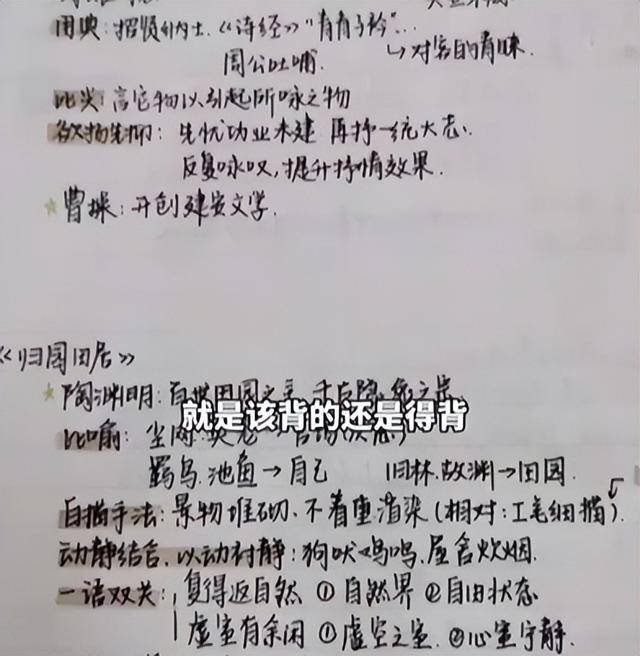 用典：招贤纳士.《诗经》"青青子衿"...
周公吐哺.
↳对客的青睐.
比兴：言它物以引起所咏之物
欲扬先抑：先忧功业未建 再抒一统大志.
反复咏叹,提升抒情效果.
曹操：开创建安文学.
《归园田居》
陶渊明：百世田园之主
就是该背的还是得背
比喻：尘网
羁鸟.池鱼→自己 旧林.故渊→田园.
白描手法：景物堆砌.不着重渲染(相对：工笔细描).
动静结合.以动衬静：狗吠鸡鸣.屋舍炊烟.
一语双关：复得返自然 ①自然界 ②自由状态
虚室有余闲 ①虚空之室.②心室宁静.